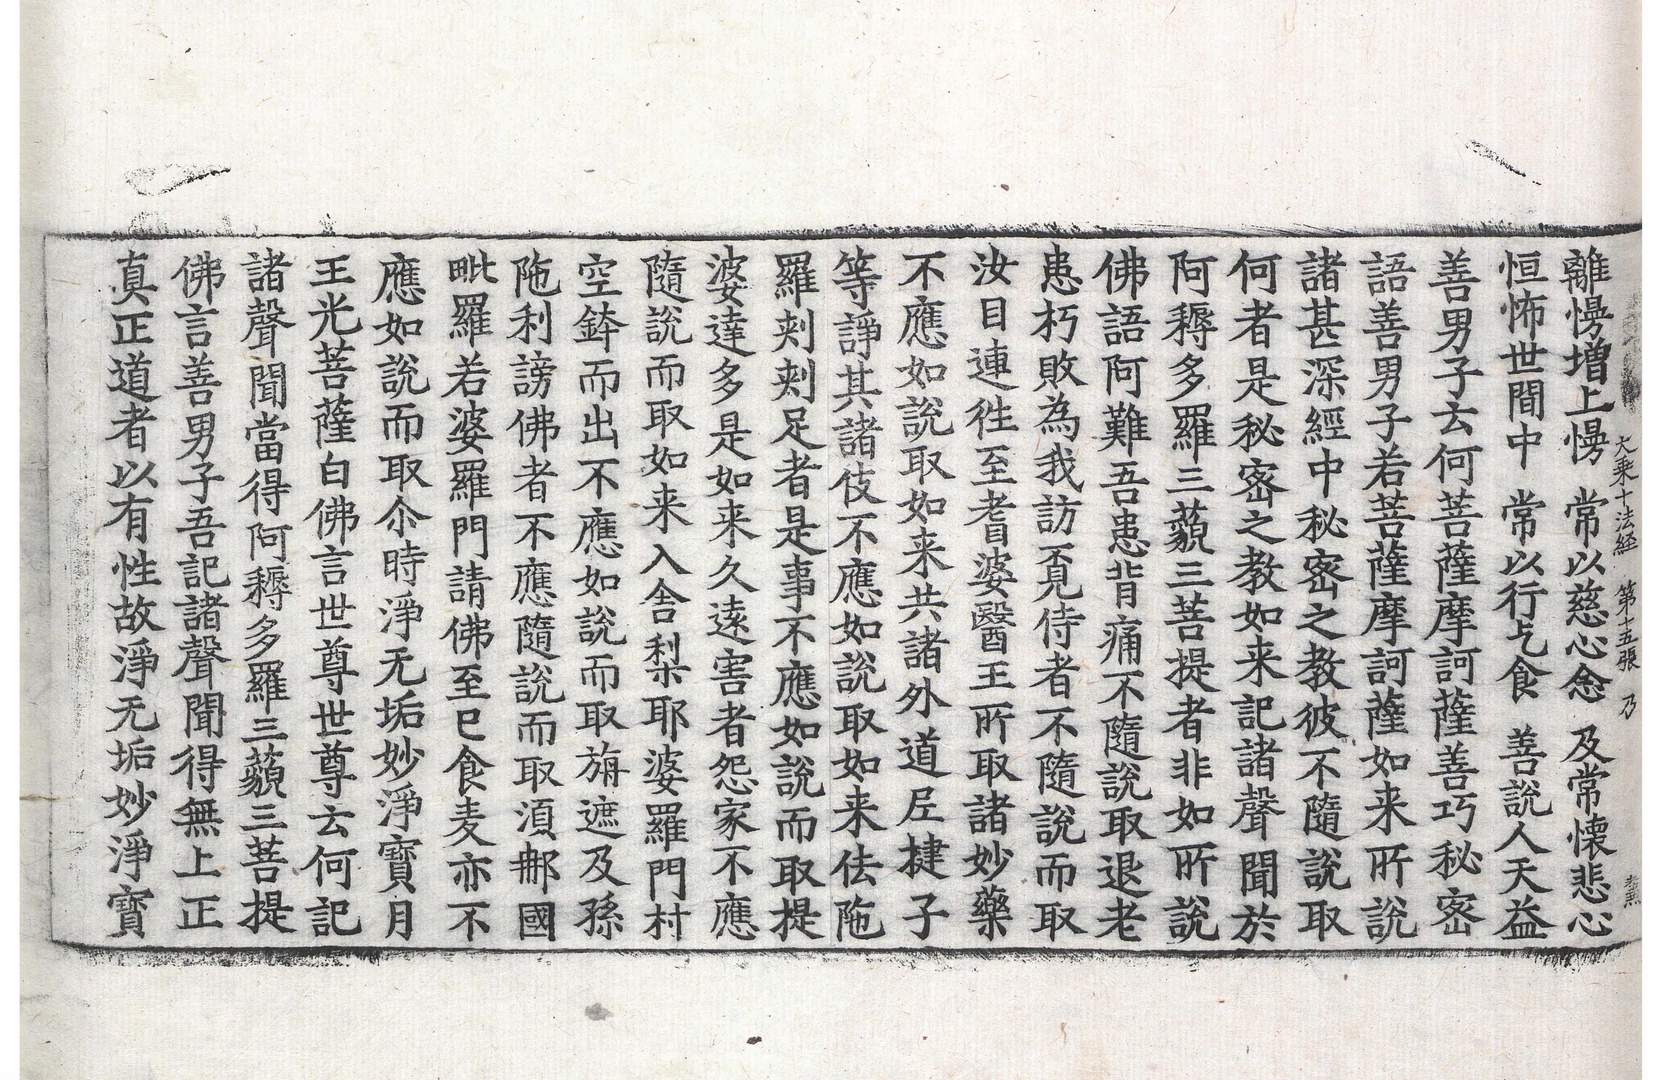 離慢增上慢　常以慈心念　及常懷悲心
大乘十法経　第十五張　乃
恒怖世間中　常以行乞食　善說人天益
善男子去何菩薩摩訶薩善巧秘密
語善男子若菩薩摩訶薩如来所說
諸甚深經中秘密之教彼不隨說取
何者是秘密之教如来記諸聲聞於
阿耨多羅三藐三菩提者非如所說
佛語阿難吾患背痛不隨說取退老
患朽敗為我訪覔侍者不隨說而取
汝目連徃至耆婆醫王所取諸妙藥
不應如說取如来共諸外道尼揵子
等諍其諸伎不應如說取如来佉陁
羅刾刾足者是事不應如說而取提
婆達多是如来久遠害者怨家不應
隨說而取如来入舎梨耶婆羅門村
空鉢而出不應如說而取旃遮及孫
陁利謗佛者不應隨說而取湏郍國
毗羅若婆羅門請佛至已食麦亦不
應如說而取尒時淨无垢妙淨寶月
王光菩薩白佛言世尊世尊去何記
諸聲聞當得阿耨多羅三藐三菩提
佛言善男子吾記諸聲聞得無上正
真正道者以有性故淨无垢妙淨寶